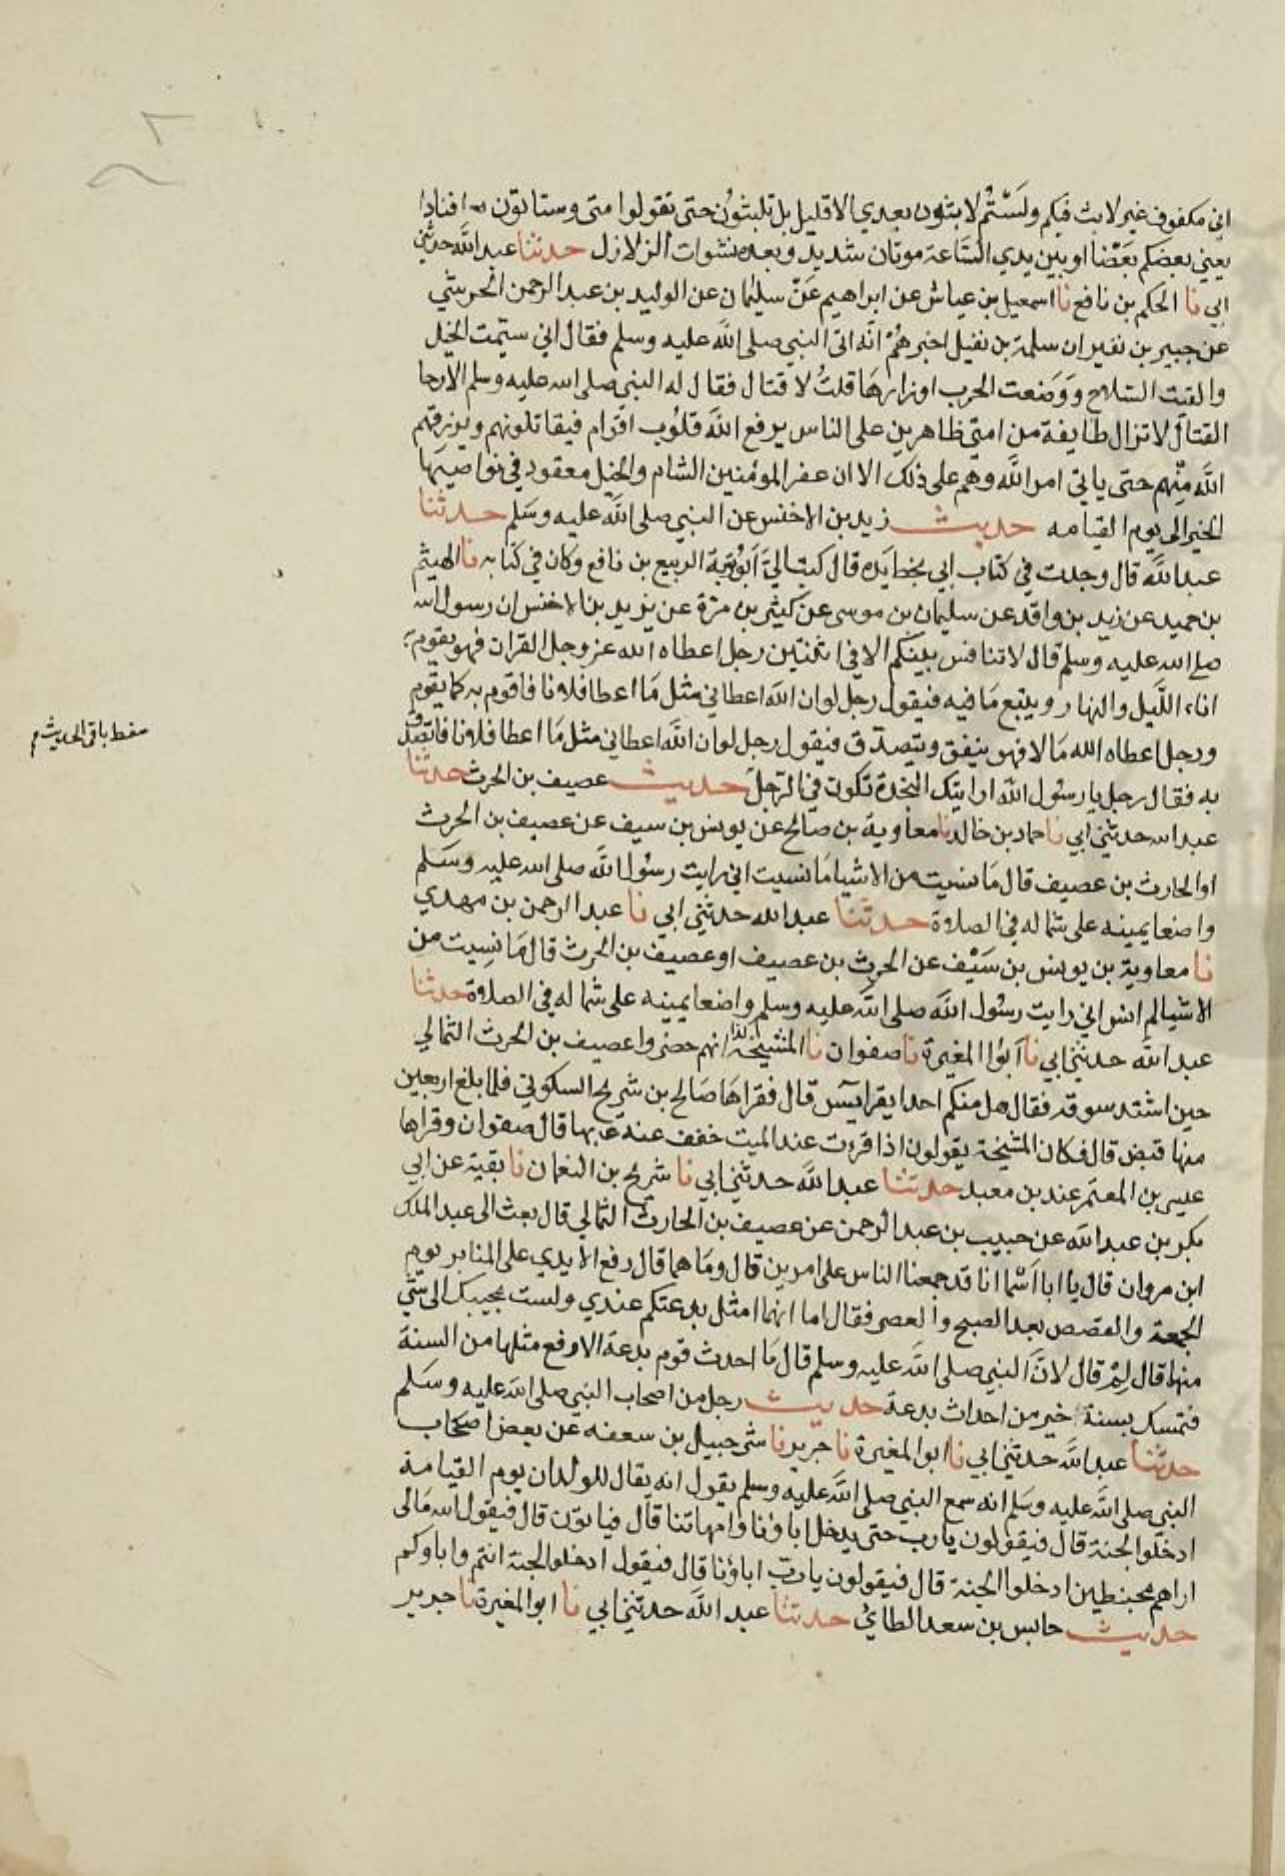 اني مكفوف غير لابث فيكم ولستم لابثون بعدي الا قليل بل تلبثون حتى تقولوا متى وستاتون افنادا
يعني بعضكم بعضا او بين يدي الساعة موتان شديد وبعده سنوات الزلازل حدثنا عبد الله حدثني
ابي نا الحكم بن نافع نا اسمعيل بن عياش عن ابراهيم عن سليمان عن الوليد بن عبد الرحمن الجرشي
عن جبير بن نفير ان سلمة بن نفيل اخبرهم انه اتى النبي صلى الله عليه وسلم فقال اني سئمت الخيل
والقيت السلاح ووضعت الحرب اوزارها قلت لا قتال فقال له النبي صلى الله عليه وسلم الان جا
القتال لا تزال طايفة من امتي ظاهرين على الناس يرفع الله قلوب اقوام فيقاتلونهم ويرزقهم
الله منهم حتى ياتي امر الله وهم على ذلك الا ان عقر المؤمنين الشام والخيل معقود في نواصيها
الخير الى يوم القيامه حديث زيد بن الاخنس عن النبي صلى الله عليه وسلم حدثنا
عبد الله قال وجدت في كتاب ابي بخط يده قال كتب الي ابو توبة الربيع بن نافع وكان في كتابه نا الهيثم
بن حميد عن زيد بن واقد عن سليمان بن موسى عن كثير بن مرة عن يزيد بن الاخنس ان رسول الله
صلى الله عليه وسلم قال لا تنافس بينكم الا في اثنتين رجل اعطاه الله عز وجل القران فهو يقوم به
اناء الليل والنهار ويتبع ما فيه فيقول رجل لو ان الله اعطاني مثل ما اعطا فلانا فاقوم به كما يقوم
ورجل اعطاه الله مالا فهو ينفق ويتصدق فيقول رجل لو ان الله اعطاني مثل ما اعطا فلانا فاتصدق
به فقال رجل يا رسول الله ارايتك النجدة تكون في الرجل حديث عصيف بن الحرث حدثنا
سقط باقي الحديث
عبد الله حدثني ابي نا حماد بن خالد نا معاوية بن صالح عن يونس بن سيف عن عصيف بن الحرث
او الحارث بن عصيف قال ما نسيت من الاشيا ما نسيت اني رايت رسول الله صلى الله عليه وسلم
واضعا يمينه على شماله في الصلاة حدثنا عبد الله حدثني ابي نا عبد الرحمن بن مهدي
نا معاوية بن يونس بن سيف عن الحرث بن عصيف او عصيف بن الحرث قال ما نسيت من
الاشيا لم انس اني رايت رسول الله صلى الله عليه وسلم واضعا يمينه على شماله في الصلاة حدثنا
عبد الله حدثني ابي نا ابو المغيرة نا صفوان نا المشيخة انهم حضروا عصيف بن الحرث الثمالي
حين اشتد سوقه فقال هل منكم احد ايقرا يس قال فقراها صالح بن شريح السكوني فلما بلغ اربعين
منها قبض قال فكان المشيخة يقولون اذا قرءت عند الميت خفف عنه بها قال صفوان وقراها
عيسى بن المعتمر عند بن معبد حدثنا عبد الله حدثني ابي نا شريح بن النعمان نا بقية عن ابي
بكر بن عبد الله عن حبيب بن عبد الرحمن عن عصيف بن الحارث الثمالي قال بعث الى عبد الملك
ابن مروان قال يا ابا اسما انا قد جمعنا الناس على امرين قال وما هما قال رفع الايدي على المنابر يوم
الجمعة والقصص بعد الصبح والعصر فقال اما انهما امثل بدعتكم عندي ولست مجيبك الى شي
منها قال لم قال لان النبي صلى الله عليه وسلم قال ما احدث قوم بدعة الا رفع مثلها من السنة
فتمسك بسنة خير من احداث بدعة حديث رجل من اصحاب النبي صلى الله عليه وسلم
حدثنا عبد الله حدثني ابي نا ابو المغيرة نا جرير نا شرحبيل بن سعفه عن بعض اصحاب
النبي صلى الله عليه وسلم انه سمع النبي صلى الله عليه وسلم يقول انه يقال للولدان يوم القيامة
ادخلوا الجنة قال فيقولون يا رب حتى يدخل اباؤنا وامهاتنا قال فياتون قال فيقول الله مالى
اراهم محبنطين ادخلوا الجنة قال فيقولون يا رب اباؤنا قال فيقول ادخلوا الجنة انتم واباوكم
حديث حابس بن سعد الطائي حدثنا عبد الله حدثني ابي نا ابو المغيرة نا جرير